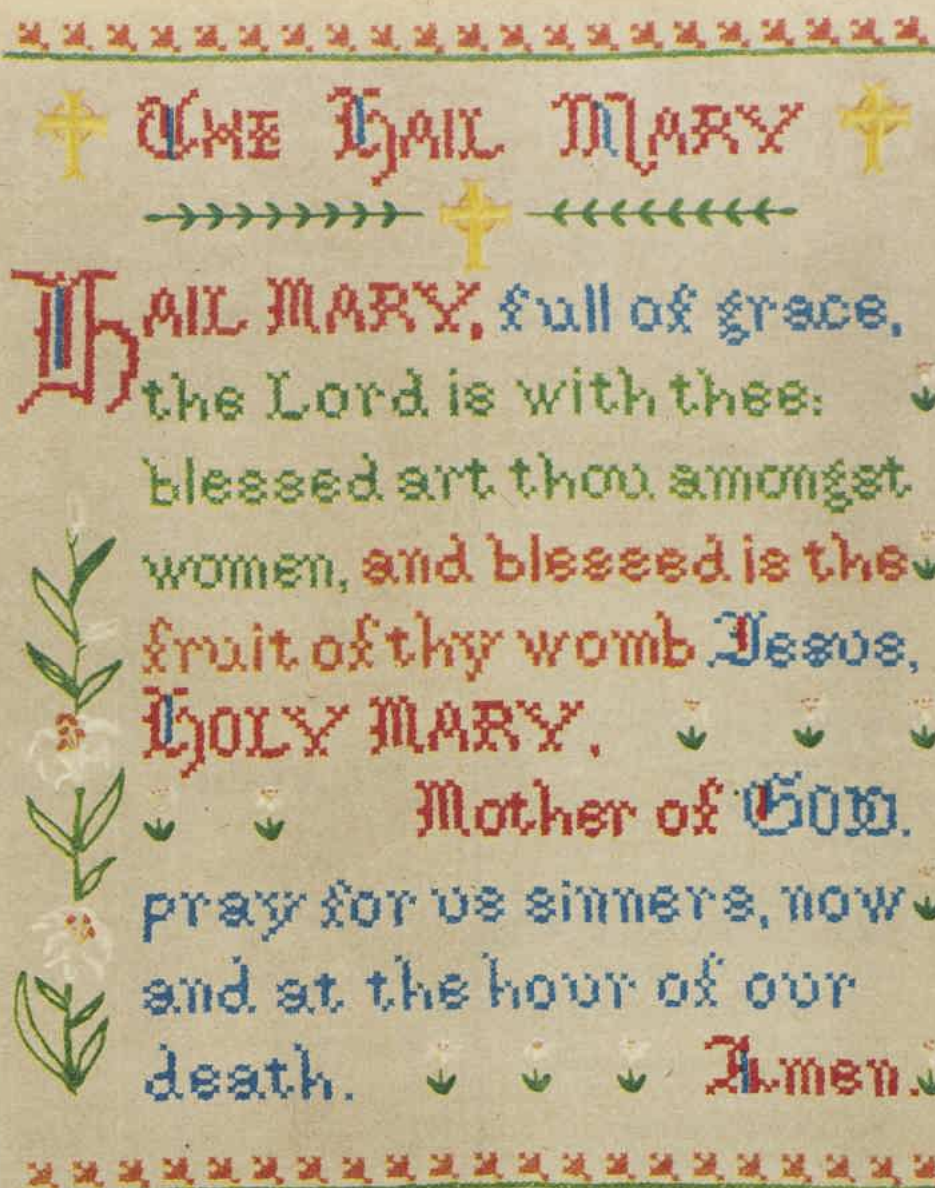 THE HAIL MARY
HAIL MARY, full of grace,
the Lord is with thee:
blessed art thou amongst
women, and blessed is the
fruit of thy womb Jesus,
HOLY MARY,
Mother of GOD.
pray for us sinners, now
and at the hour of our
death. Amen.